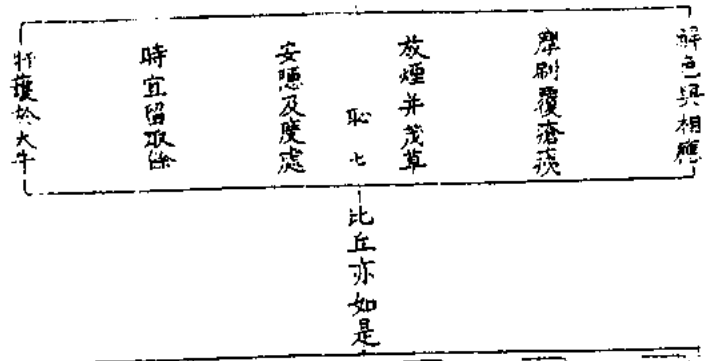 解色與相應
摩刷覆瘡痍
放煙并茂草
恥七
安隱及度處
時宜留取餘
將護於大牛
比丘亦如是